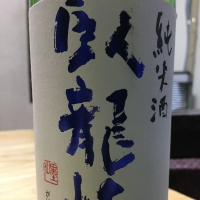 純米酒
臥龍梅